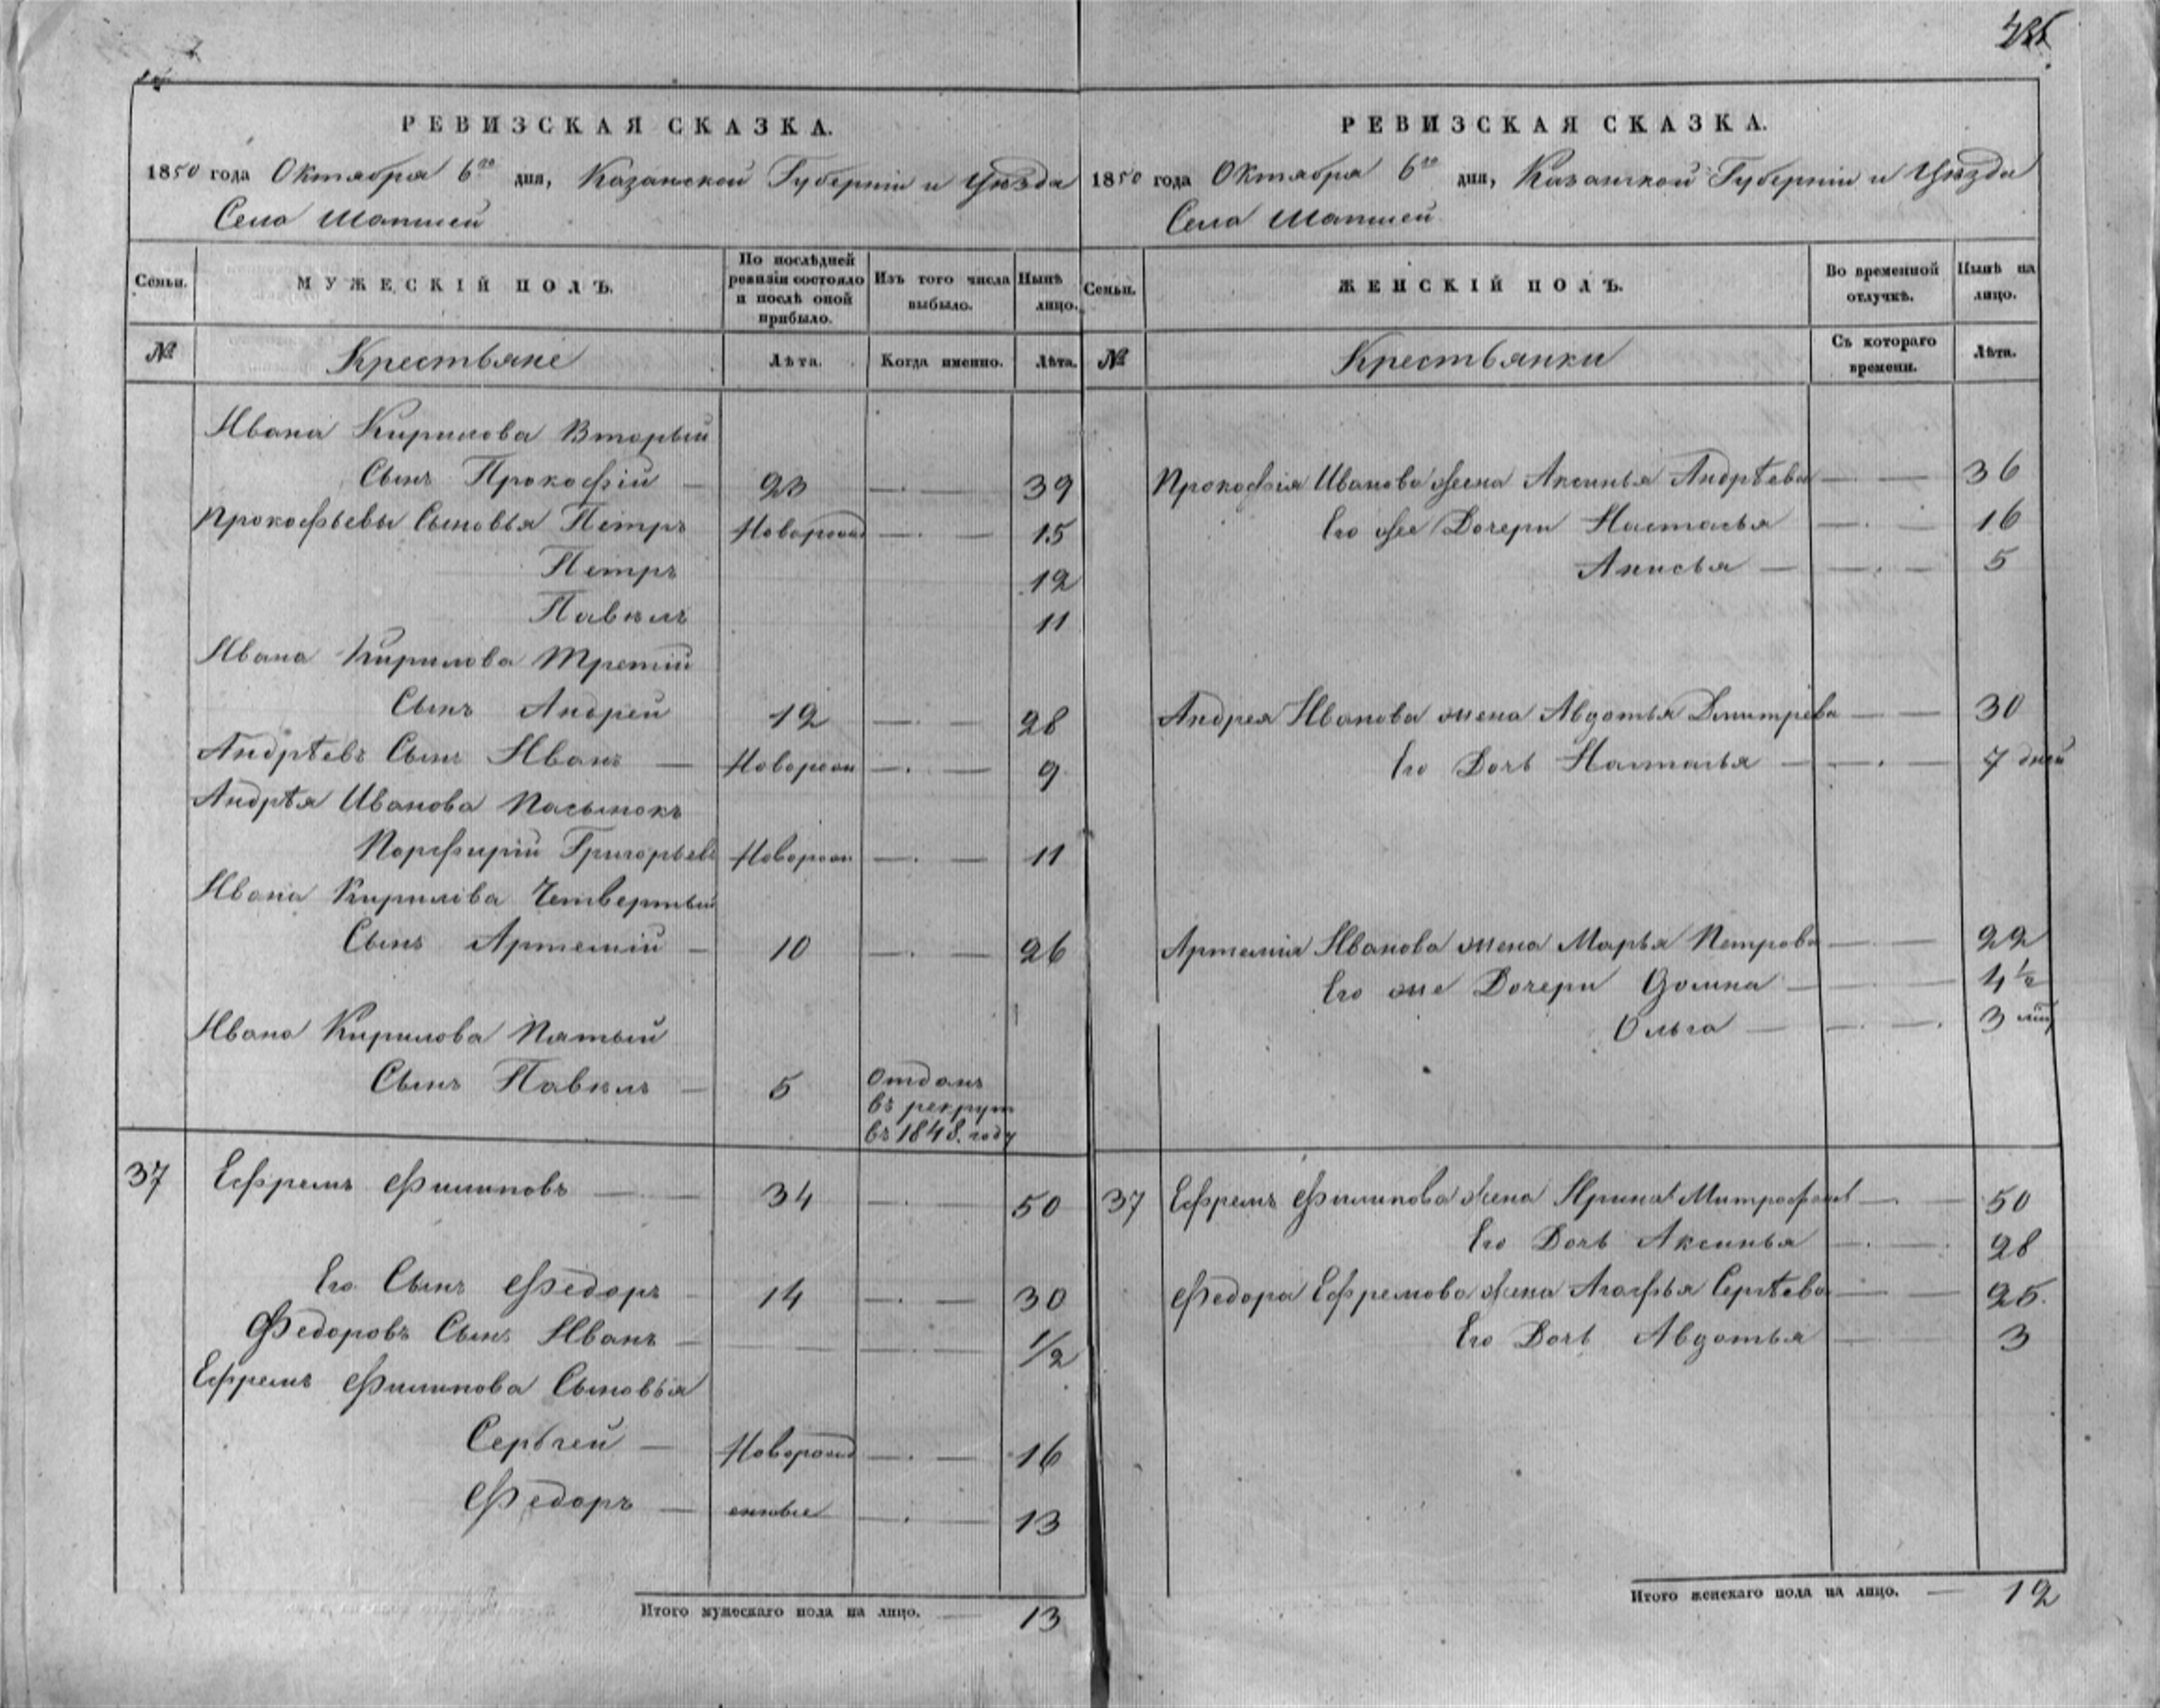 РЕВИЗСКАЯ СКАЗКА.
1850 года Октября 6го дня, Казанской Губерніи и Уѣзда
Села Шапшей
Семьи. МУЖЕСКІЙ ПОЛЪ. По послѣдней ревизіи состояло и послѣ оной прибыло. Изъ того числа выбыло. Нынѣ на лицо.
№ Крестьяне Лѣта. Когда именно. Лѣта.
Ивана Кирилова Вторый
Сынъ Прокофій — 23 — 39
Прокофьевы Сыновья Петръ Новорожд — 15
Петръ 12
Павелъ 11
Ивана Кирилова Третій
Сынъ Андрей 12 — 28
Андрѣевъ Сынъ Иванъ — Новорож — 9
Андрѣя Иванова Пасынокъ
Порфирій Григорьевъ Новорож — 11
Ивана Кирилова Четвертый
Сынъ Артемій — 10 — 26
Ивана Кирилова Пятый
Сынъ Павелъ — 5 Отданъ
въ рекрут
въ 1848. году
37 Ефремъ Филиповъ — 34 — 50
Его Сынъ Федоръ — 14 — 30
Федоровъ Сынъ Иванъ — 1/2
Ефремъ Филипова Сыновья
Сергей — Новорожд — 16
Федоръ — енные — 13
Итого мужескаго пола на лицо. — 13
РЕВИЗСКАЯ СКАЗКА.
1850 года Октября 6го дня, Казанской Губерніи и Уѣзда
Села Шапшей
Семьи. ЖЕНСКІЙ ПОЛЪ. Во временной отлучкѣ. Нынѣ на лицо.
№ Крестьянки Съ котораго времени. Лѣта.
Прокофія Иванова жена Аксинья Андрѣева — 36
Его же Дочери Настасья — 16
Анисья — 5
Андрея Иванова жена Авдотья Дмитрева — 30
Его Дочь Настасья — 7 дней
Артемія Иванова жена Марья Петрова — 22
Его же Дочери Домна — 4 1/2
Ольга — 3
37 Ефремъ Филипова жена Ирина Митрофан — 50
Его Дочь Аксинья — 28
Федора Ефремова жена Агафья Сергѣева — 25.
Его Дочь Авдотья — 3
Итого женскаго пола на лицо. — 12